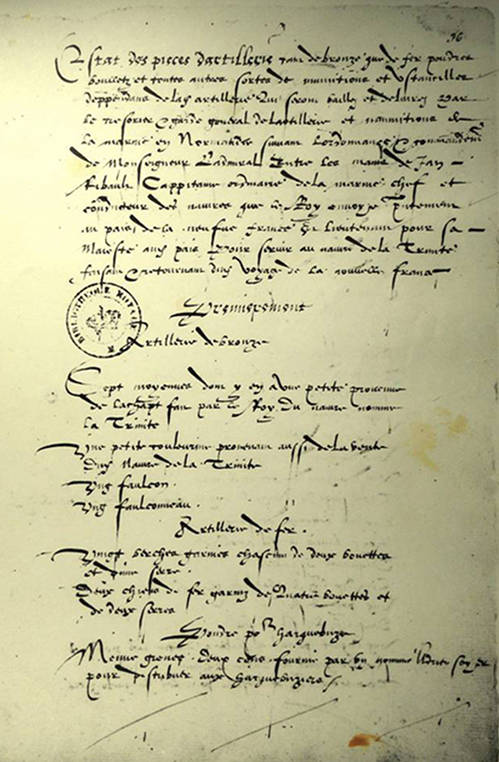 56
Estat des pieces dartillerie tant de bronze que de fer pouldres
boulletz et toutes autres sortes de munitions et ustancilles
deppendans de lad artillerie qui seront baillez et delivrez par
le tresorier & garde general de lartillerie et munitions de
la marine en Normandie suivant lordonnance & commandement
de Monseigneur Ladmiral Entre les mains de Jan
Ribault Cappitaine ordinaire de la marine chef et
conducteur des navires que le Roy envoye presentement
au pais de la neufve France & Lieutenant pour sa
Majeste aud pais Pour servir au navire de la Trinite
faisant & retournant dud voyage de la nouvelle France
Premierement
BIBLIOTHEQUE
Artillerie de bronze
Sept moyennes dont y en a une petite provenue
de lachapt faict par le Roy du navire nomme
la Trinite
Une petite coulevrine provenant aussi de la vente
dud Navire de la Trinite
Ung faulcon
Ung faulconneau
Artillerie de fer
Vingt berches garnies chascune de deux bouettes
et dune serre
Deux chiens de fer garniz de quatre bouettes et
de deux serres
Pouldre por harquebuze
Menue grenee deux cens fournie par ung nomme
pour distribuer aux harquebuziers